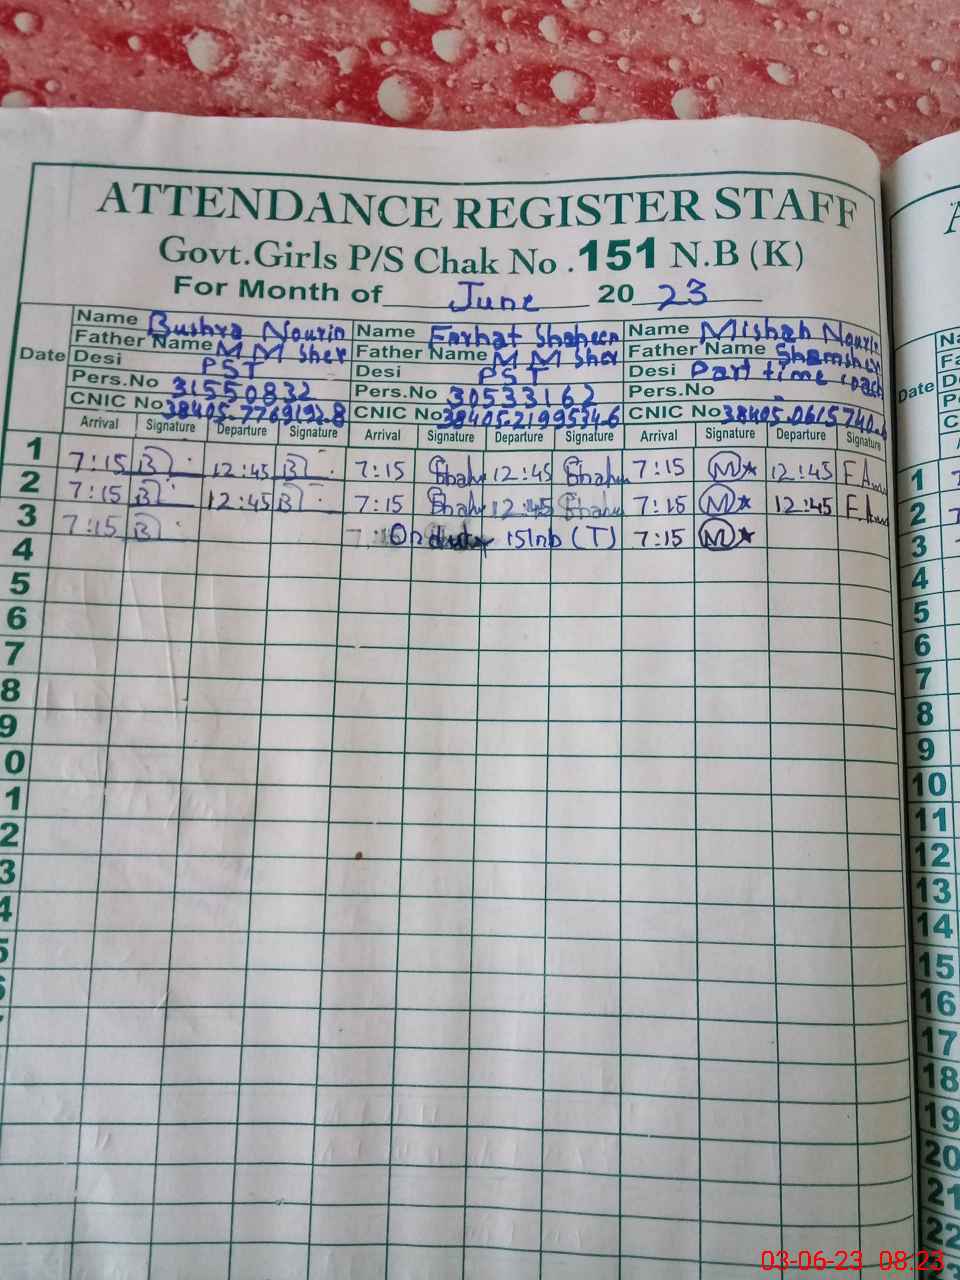 ATTENDANCE REGISTER STAFF
Govt.Girls P/S Chak No .151 N.B (K)
For Month of June 20 23
Date
Name Bushra Nourin Name Farhat Shaheen Name Misbah Nourin
Father Name M M Sher Father Name M M Sher Father Name Shamsher
Desi PST Desi PST Desi Part time coach
Pers.No 31550832 Pers.No 30533162 Pers.No -
CNIC No 38405-7769192-8 CNIC No 38405-2199534-6 CNIC No 38405-0615740-
Arrival Signature Departure Signature Arrival Signature Departure Signature Arrival Signature Departure Signature
1 7:15 B 12:45 B 7:15 Shah 12:45 Shah 7:15 M 12:45
2 7:15 B 12:45 B 7:15 Shah 12:45 Shah 7:15 M 12:45
3 7:15 B On duty 151nb (T) 7:15 M
4
5
6
7
8
9
0
1
2
3
4
5
Date
1
2
3
4
5
6
7
8
9
10
11
12
13
14
15
16
17
18
19
20
21
22
03-06-23 08:23